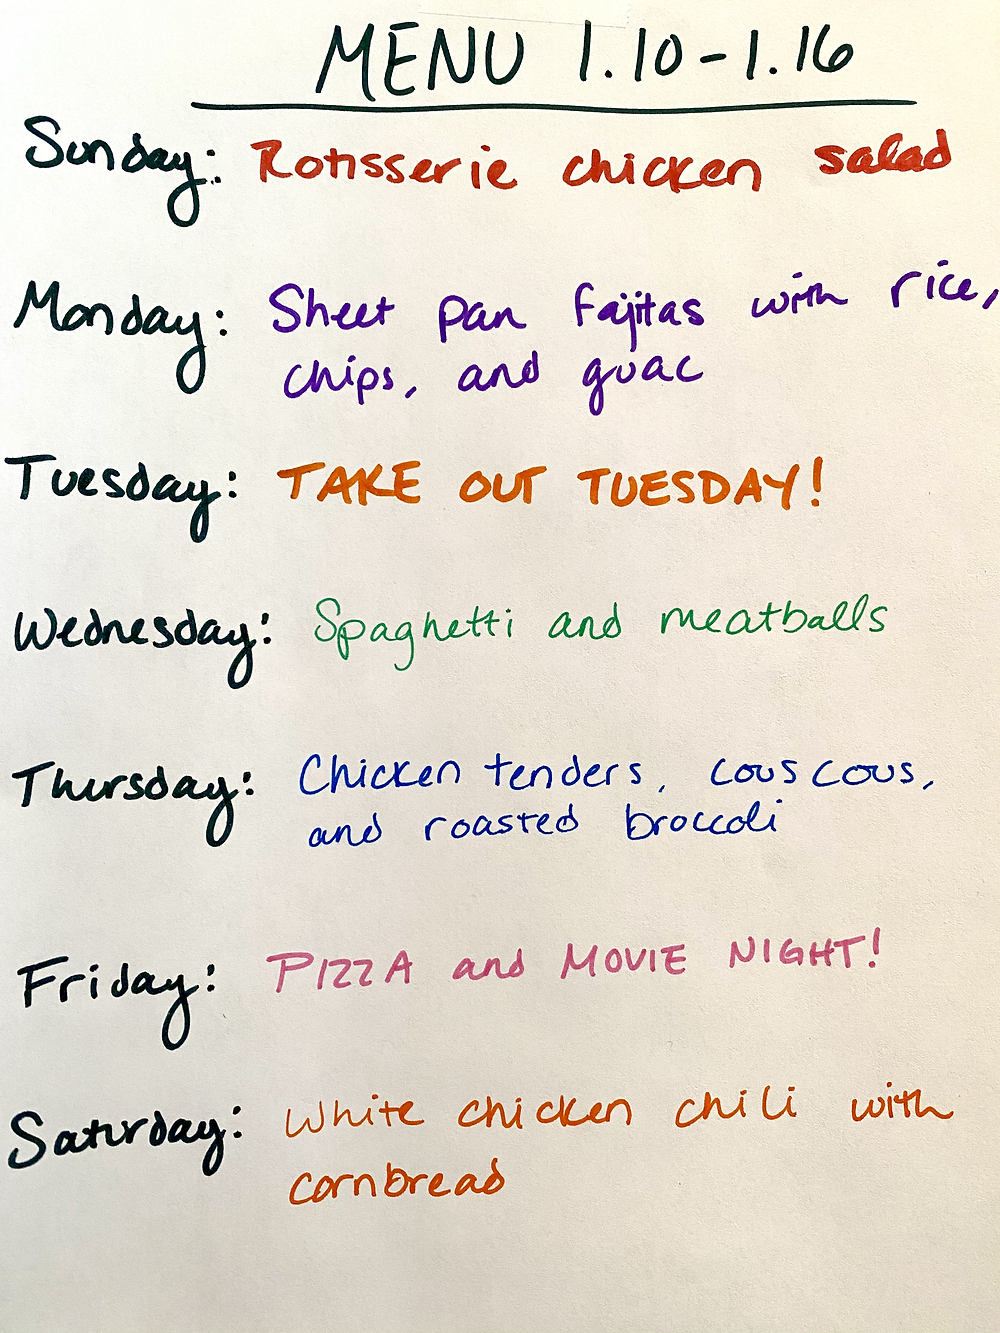 MENU 1.10-1.16
Sunday: Rotisserie chicken salad
Monday: Sheet pan fajitas with rice,
chips, and guac
Tuesday: TAKE OUT TUESDAY!
Wednesday: Spaghetti and meatballs
Thursday: Chicken tenders, couscous,
and roasted broccoli
Friday: PIZZA and MOVIE NIGHT!
Saturday: White chicken chili with
cornbread